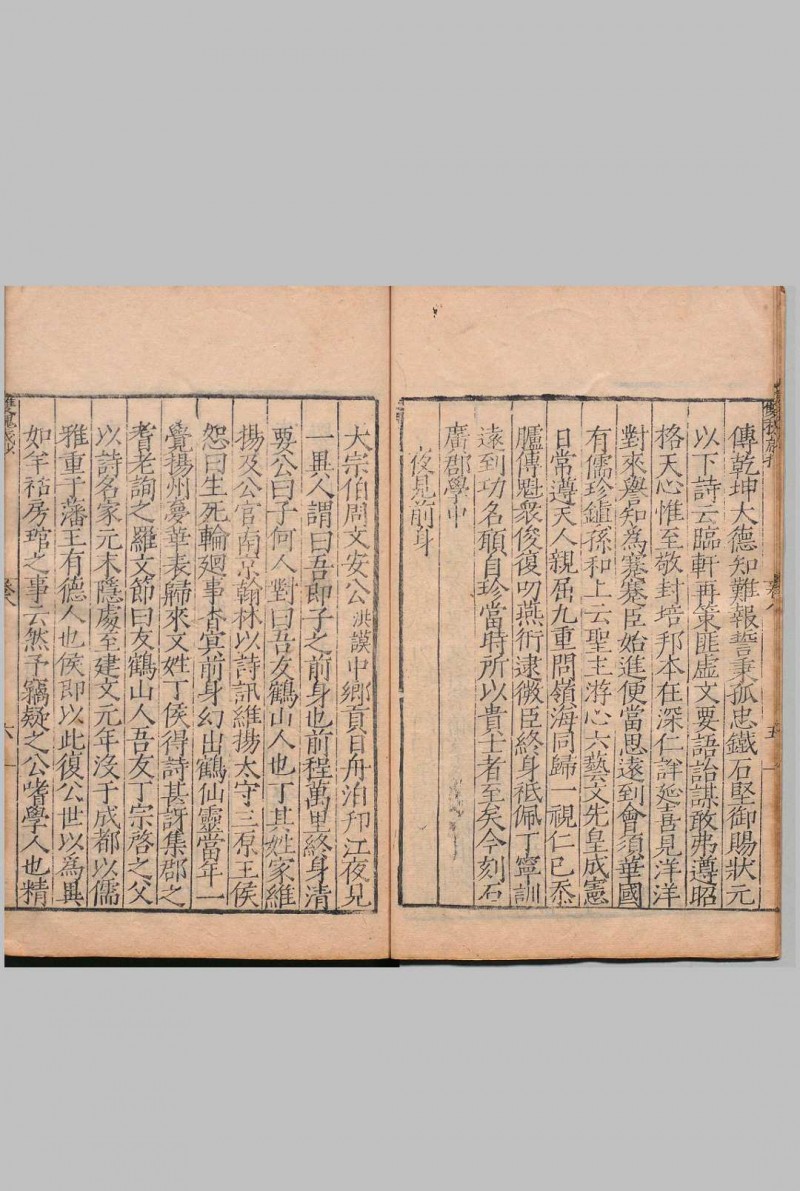 傳乾坤大德知難報誓秉孤忠鐵石堅御賜狀元
以下詩云臨軒再策匪虛文要語詒謀敢弗遵昭
格天心惟至敬封培邦本在深仁詳延喜見洋洋
對來譽知為蹇蹇臣始進便當思遠到會須華國
有儒珍鑪孫和上云聖主游心六藝文先皇成憲
日常遵天人親屈九重問嶺海同歸一視仁已忝
臚傳魁衆俊復叨燕衎逮微臣終身袛佩丁寧訓
遠到功名頋自珍當時所以貴士者至矣今刻石
廣郡學中
夜見前身
大宗伯周文安公洪謨中鄉貢日舟泊邗江夜見
一異人謂曰吾即子之前身也前程萬里終身清
要公曰子何人對曰吾友鶴山人也丁其姓家維
揚及公官南京翰林以詩訊維揚太守三原王侯
恕曰生死輪廻事杳冥前身幻出鶴仙靈當年一
覺揚州夢華表歸來又姓丁侯得詩甚訝集郡之
耆老詢之羅文節曰友鶴山人吾友丁宗啓之父
以詩名家元末隱處至建文元年沒于成都以儒
雅重于藩王有德人也侯即以此復公世以為異
如羊祜房琯之事云然予竊疑之公嗜學人也精
卷八
五
六